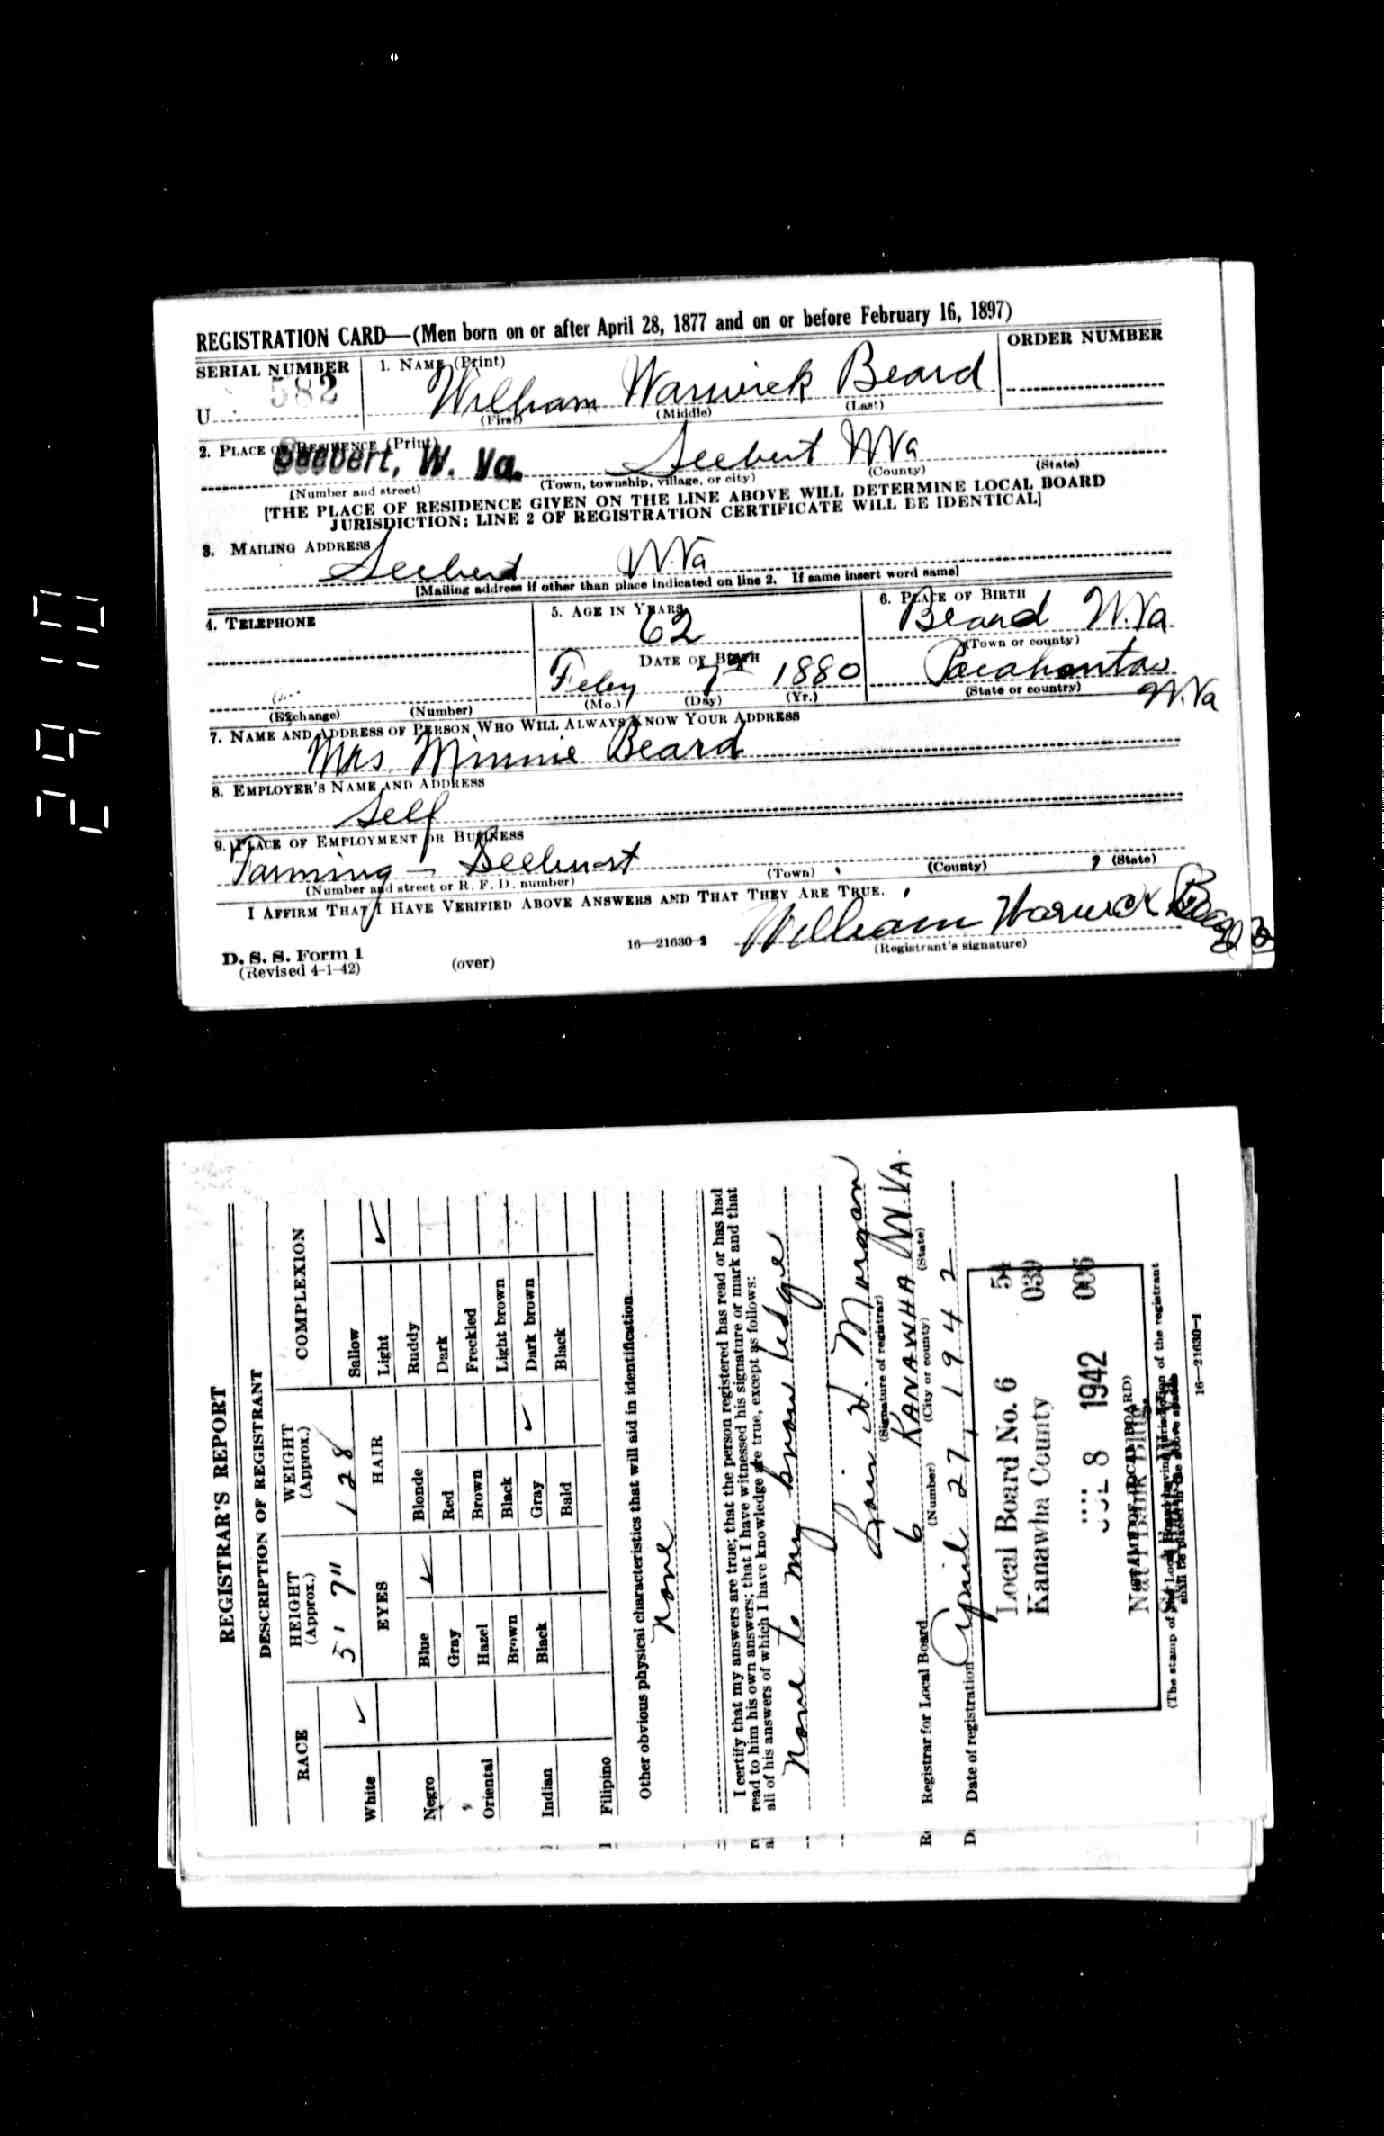 REGISTRATION CARD—(Men born on or after April 28, 1877 and on or before February 16, 1897)
SERIAL NUMBER
1. NAME (Print)
ORDER NUMBER
U 582
William Warwick Beard
(First) (Middle) (Last)
2. PLACE OF RESIDENCE (Print)
Seebert, W. Va. Seebert W Va
(Number and street) (Town, township, village, or city) (County) (State)
[THE PLACE OF RESIDENCE GIVEN ON THE LINE ABOVE WILL DETERMINE LOCAL BOARD
JURISDICTION; LINE 2 OF REGISTRATION CERTIFICATE WILL BE IDENTICAL]
3. MAILING ADDRESS
Seebert W. Va
[Mailing address if other than place indicated on line 2. If same insert word same]
4. TELEPHONE
5. AGE IN YEARS
62
6. PLACE OF BIRTH
Beard W. Va
(Town or county)
DATE OF BIRTH
Feby 7 1880
(Mo.) (Day) (Yr.)
Pocahontas
W. Va
(State or country)
(Exchange) (Number)
7. NAME AND ADDRESS OF PERSON WHO WILL ALWAYS KNOW YOUR ADDRESS
Mrs. Minnie Beard
8. EMPLOYER'S NAME AND ADDRESS
Self
9. PLACE OF EMPLOYMENT OR BUSINESS
Farming —
(Number and street or R. F. D. number) (Town) (County) (State)
I AFFIRM THAT I HAVE VERIFIED ABOVE ANSWERS AND THAT THEY ARE TRUE.
William Warwick Beard
D. S. S. Form 1
(Revised 4-1-42) (over) 16—21630-2 (Registrant's signature)
29 10
REGISTRAR'S REPORT
DESCRIPTION OF REGISTRANT
RACE
HEIGHT
(Approx.)
WEIGHT
(Approx.)
COMPLEXION
5' 7" 128
EYES HAIR
White ✓
Negro
Oriental
Indian
Filipino
Blue ✓
Gray
Hazel
Brown
Black
Blonde
Red
Brown
Black
Gray ✓
Bald
Sallow
Light ✓
Ruddy
Dark
Freckled
Light brown
Dark brown
Black
Other obvious physical characteristics that will aid in identification
None
I certify that my answers are true; that the person registered has read or has had
read to him his own answers; that I have witnessed his signature or mark and that
all of his answers of which I have knowledge are true, except as follows:
None to my knowledge
H. Morgan
(Signature of registrar)
Registrar for Local Board 6 KANAWHA W. VA.
(Number) (City or county) (State)
Date of registration April 27, 1942
Local Board No. 6 54
Kanawha County 039
JUL 8 1942 006
(The stamp of the Local Board having jurisdiction of the registrant
shall be placed in the above space)
16—21630-1